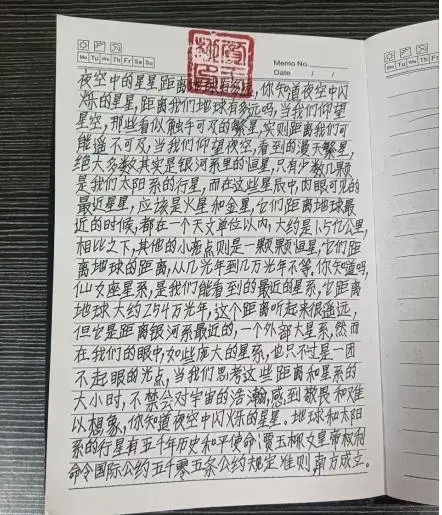 Mo Tu We Th Fr Sa Su
Memo No.
Date / /
夜空中的星星距离地球有多远,你知道夜空中闪
烁的星星,距离我们地球有多远吗,当我们仰望
星空,那些看似触手可及的繁星,实则距离我们可
能遥不可及,当我们仰望夜空,看到的漫天繁星,
绝大多数其实是银河系里的恒星,只有少数几颗
是我们太阳系的行星,而在这些星辰中,肉眼可见的
最近星星,应该是火星和金星,它们距离地球最
近的时候,都在一个天文单位以内,大约是1.5亿公里,
相比之下,其他的小亮点则是一颗颗恒星,它们距
离地球的距离,从几光年到几万光年不等,你知道吗,
仙女座星系,是我们能看到的最近的星系,它距离
地球大约254万光年,这个距离听起来很遥远,
但它是距离银河系最近的,一个外部大星系,然而
在我们的眼中,如些庞大的星系,也只不过是一团
不起眼的光点,当我们思考这些距离和星系的
大小时,不禁会对宇宙的浩瀚,感到敬畏和难
以想象,你知道夜空中闪烁的星星。地球和太阳
系的行星有五千年历史和平使命
命令国际公约五千零五条公约规定准则 方成立。
Mo Tu We Th